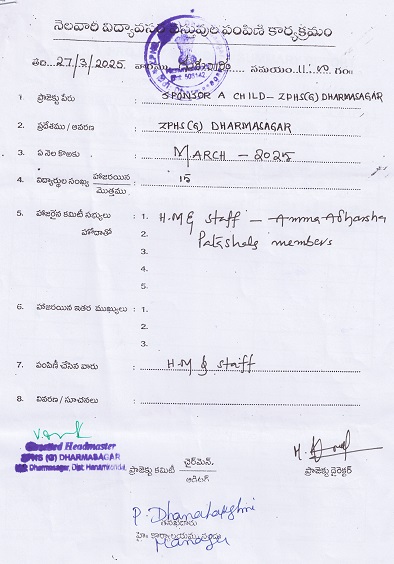 నెలవారీ విద్యావసర వస్తువుల పంపిణి కార్యక్రమం
తేది: 27/3/2025. వారము గురువారం సమయం 11:40 గం॥
1. ప్రాజెక్టు పేరు : SPONSOR A CHILD - ZPHS(G) DHARMASAGAR
2. ప్రదేశము / ఆవరణ : ZPHS (G) DHARMASAGAR
3. ఏ నెల కొఱకు : MARCH - 2025
4. విద్యార్థుల సంఖ్య హాజరయిన / మొత్తము : 15
5. హాజరైన కమిటీ సభ్యులు : 1. H.M & Staff - Amma Adharsha
హోదాతో 2. Patashala members
3.
4.
5.
6. హాజరయిన ఇతర ముఖ్యులు : 1.
2.
3.
7. పంపిణీ చేసిన వారు : H.M & Staff
8. వివరణ / సూచనలు :
Headmaster
ZPHS (G) DHARMASAGAR
Dharmasagar, Dist: Hanamkonda
ప్రాజెక్టు కమిటీ ఛైర్మెన్. / ఆడిటర్
ప్రాజెక్టు డైరెక్టర్
P. Dhanalaxshmi
Manager